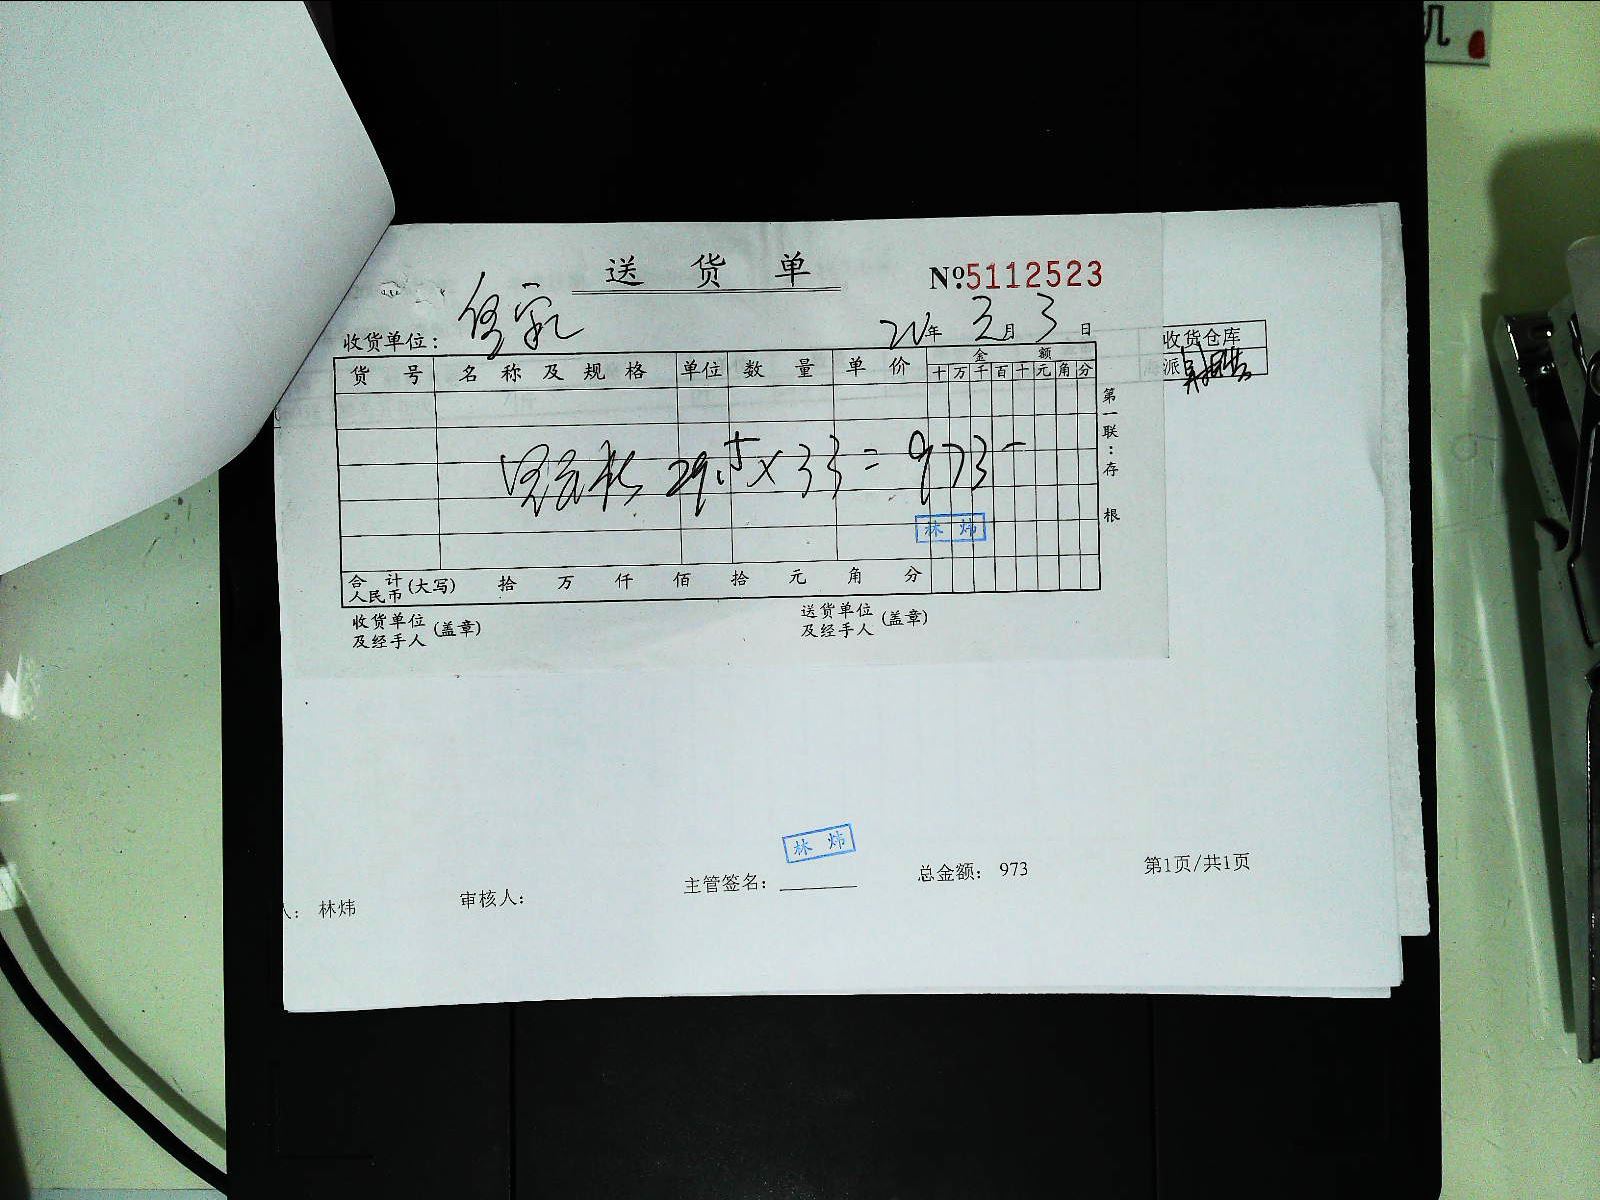 机
送 货 单
№5112523
收货单位：
年 月 3 日
收货仓库
派
货 号 名 称 及 规 格 单位 数 量 单 价 金 额
十 万 千 百 十 元 角 分
29.5 × 33 = 973
林 炜
合 计 人民币 (大写) 拾 万 仟 佰 拾 元 角 分
收货单位 及经手人 (盖章)
送货单位 及经手人 (盖章)
第一联：存根
林 炜
林炜
审核人：
主管签名：
总金额： 973
第1页/共1页